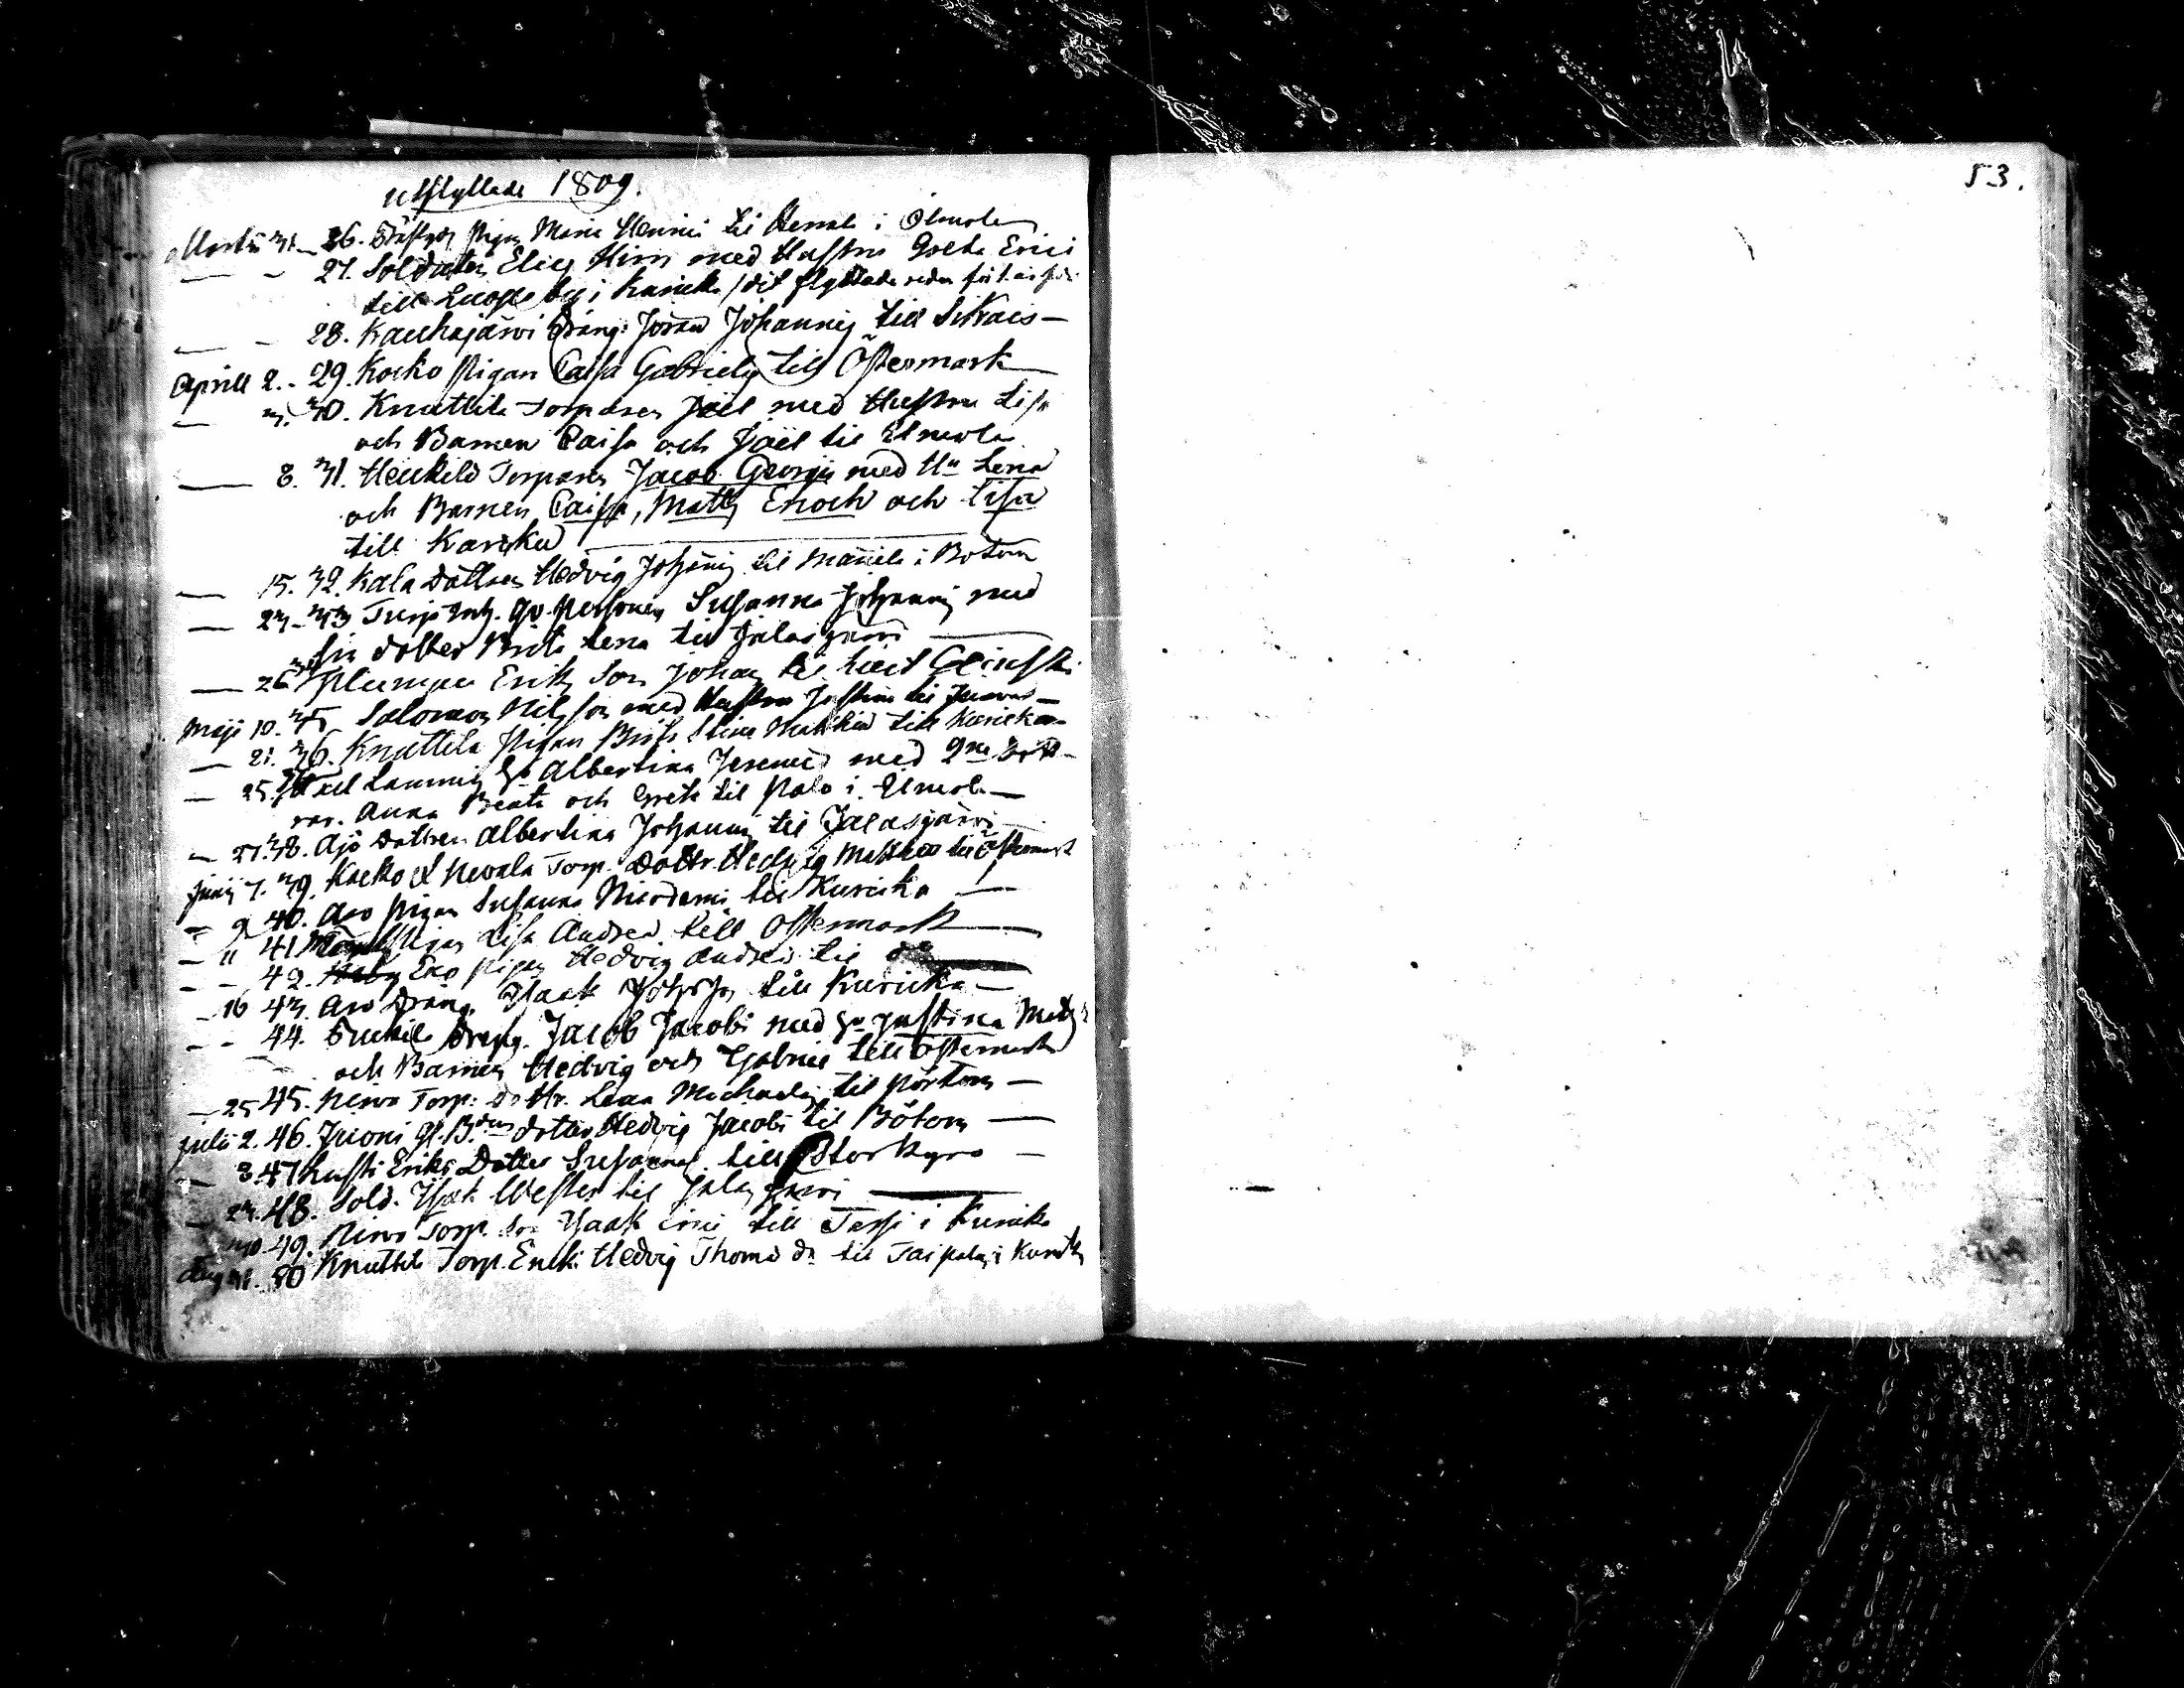 utflyttade 1809.
53.
Martii 31 – 26. Pigan Maria Henrici til Herrala i Ilmola
— - 27. Soldaten Elias Hirn med Hustru Greta Erici
till Luopa by i Kuricka / dit flyttade redan
— - 28. Kauhajärvi Dräng. Jöran Johannis till Sikais —
Aprill 2. - 29. Koskо Pigan Caisa Gabriels till Östermark
— 3. 30. Knuttila Torparen Joel med Hustru Lisa
och Barnen Caisa och Joel til Ilmola
— 8. 31. Heickilä Torparen Jacob Georgii med Hu Lena
och Barnen Caisa, Matts Enoch och Lisa
till Karvia
— 15. 32. Kala Dottren Hedvig Johannis til i Botom
— 23 - 33 Torp Inh. Qv. Personen Susanna Johannis med
sin dotter Brita Lena til Jalasjärvi
— 26 34 Eriks Son Johan til
Maji 10. 35 Salomon Nilsson med Hustru Justina til
— 21. 36. Knuttila Pigan Stina Matthiæ till Kuricka
— 25. 37 Lammi Albertina Jeremiæ med 2ne Dött-
rar. Anna Beata och Greta til Palo i Ilmola —
— 27. 38. Äijö Dottren Albertina Johannis til Jalasjärvi
Junij 7. 39. Koskо et Nevala Torp. Dottr. Hedvig Matthiæ til Östermark
— 9 40. Aro Pigan Susanna Nicodemi till Kuricka —
— 11 41 Pigan Lisa Andreæ till Östermark —
— - 42. Pigan Hedvig Andreæ til do
— 16 43. Aro Dräng. Isaak Johsson till Kuricka —
— - 44. Dräng. Jacob Jacobi med Hu Justina Matts
och Barnen Hedvig och Gabriel till Östermark
— 25 45. Nirva Torp: Dottr. Lena Michaelis til Pörtom —
Julii 2. 46. Juoni gl. Bdens dotter Hedvig Jacobi til Bötom —
— 3. 47 Lusti Eriks Dotter Susanna till Storkyro —
— 23. 48. Sold. Isak Wester til Jalasjärvi —
— 30. 49. Nirva Torp. Son Isaak Erici till i Kuricka
Aug 31. 50 Knuttila Torp. Enck: Hedvig Thomæ dr til Taipale i Kuricka